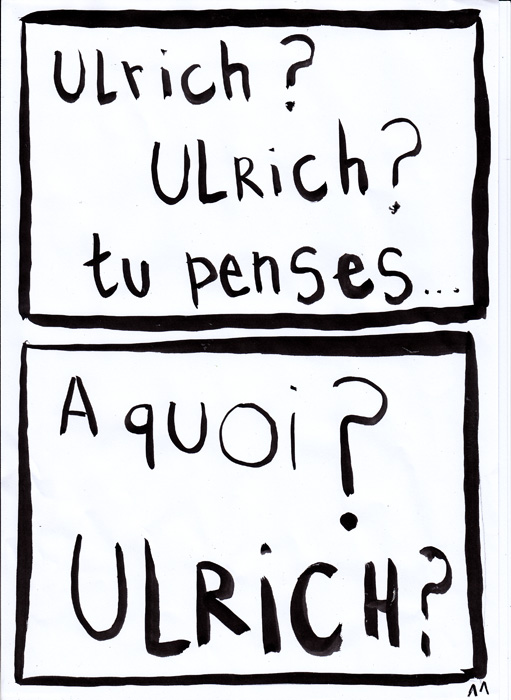 Ulrich ?
ULRich ?
tu penses...
A quoi ?
ULRiCH ?
11